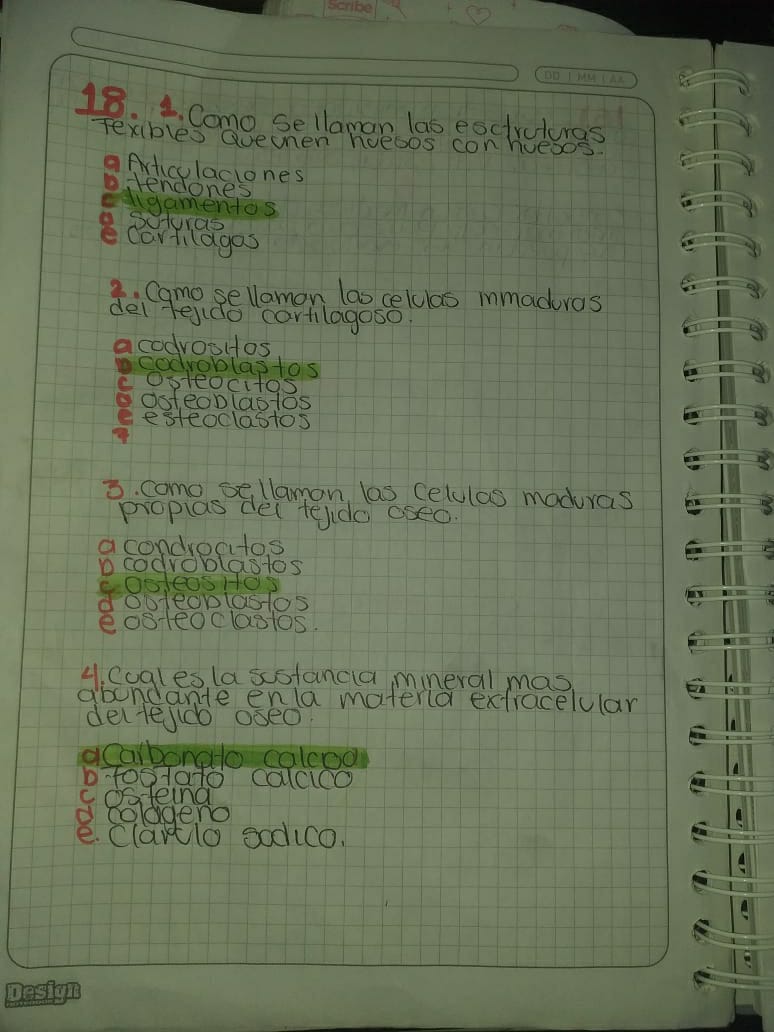 Scribe
DD | MM | AA
18. 1. Como se llaman las esctructuras
Fexibles que unen huesos con huesos.
a Articulaciones
b tendones
c ligamentos
d suturas
e cartilagos
2. Como se llaman las celulas inmaduras
del tejido cartilagoso.
a codrositos
b codroblastos
c osteocitos
d osteoblastos
e esteoclastos
3. como se llaman las celulas maduras
propias del tejido oseo.
a condrocitos
b codroblastos
c osteositos
d osteoblastos
e osteoclastos.
4. Cual es la sustancia mineral mas
abundante en la materia extracelular
del tejido oseo.
a Carbonato calcco
b fosfato calcico
c osteina
d colageno
e. Clarclo sodico.
Design